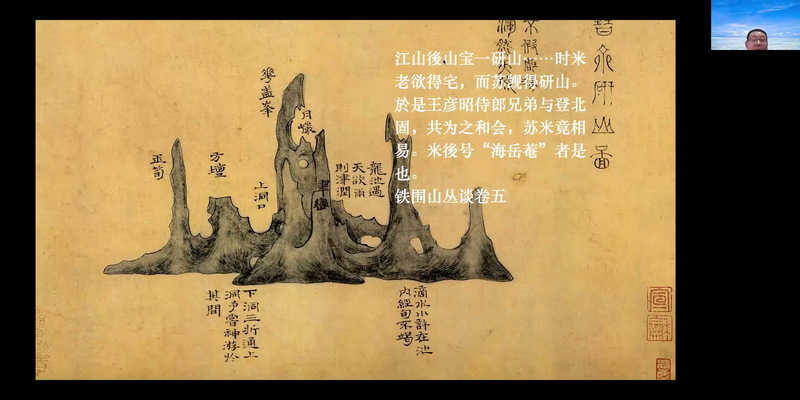 江山後山宝一研山……时米
老欲得宅，而苏觊得研山。
於是王彦昭侍郎兄弟与登北
固，共为之和会，苏米竟相
易。米後号“海岳菴”者是
也。
铁围山丛谈卷五
研山圖
不假雕
華盖峯
月巖
龍池遇
天欲雨
則津潤
翠巒
上洞口
方壇
玉筍
滴水小許在池
内經旬不竭
下洞三折通上
洞予嘗神游於
其間